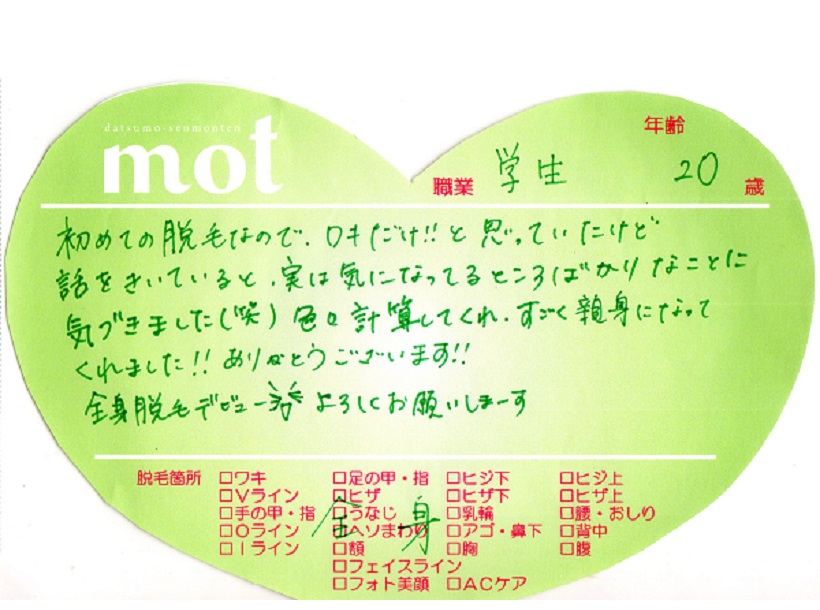 datsumo-senmonten
mot
年齢
職業 学生 20 歳
初めての脱毛なので、ワキだけ!!と思っていたけど
話をきいていると、実は気になってるところばかりなことに
気づきました(笑)色々計算してくれ、すごく親身になって
くれました!!ありがとうございます!!
全身脱毛デビュー よろしくお願いしまーす
脱毛箇所 □ワキ □足の甲・指 □ヒジ下 □ヒジ上
□Vライン □ヒザ □ヒザ下 □ヒザ上
□手の甲・指 □うなじ □乳輪 □腰・おしり
全身
□Oライン □ヘソまわり □アゴ・鼻下 □背中
□Iライン □顔 □胸 □腹
□フェイスライン
□フォト美顔 □ACケア